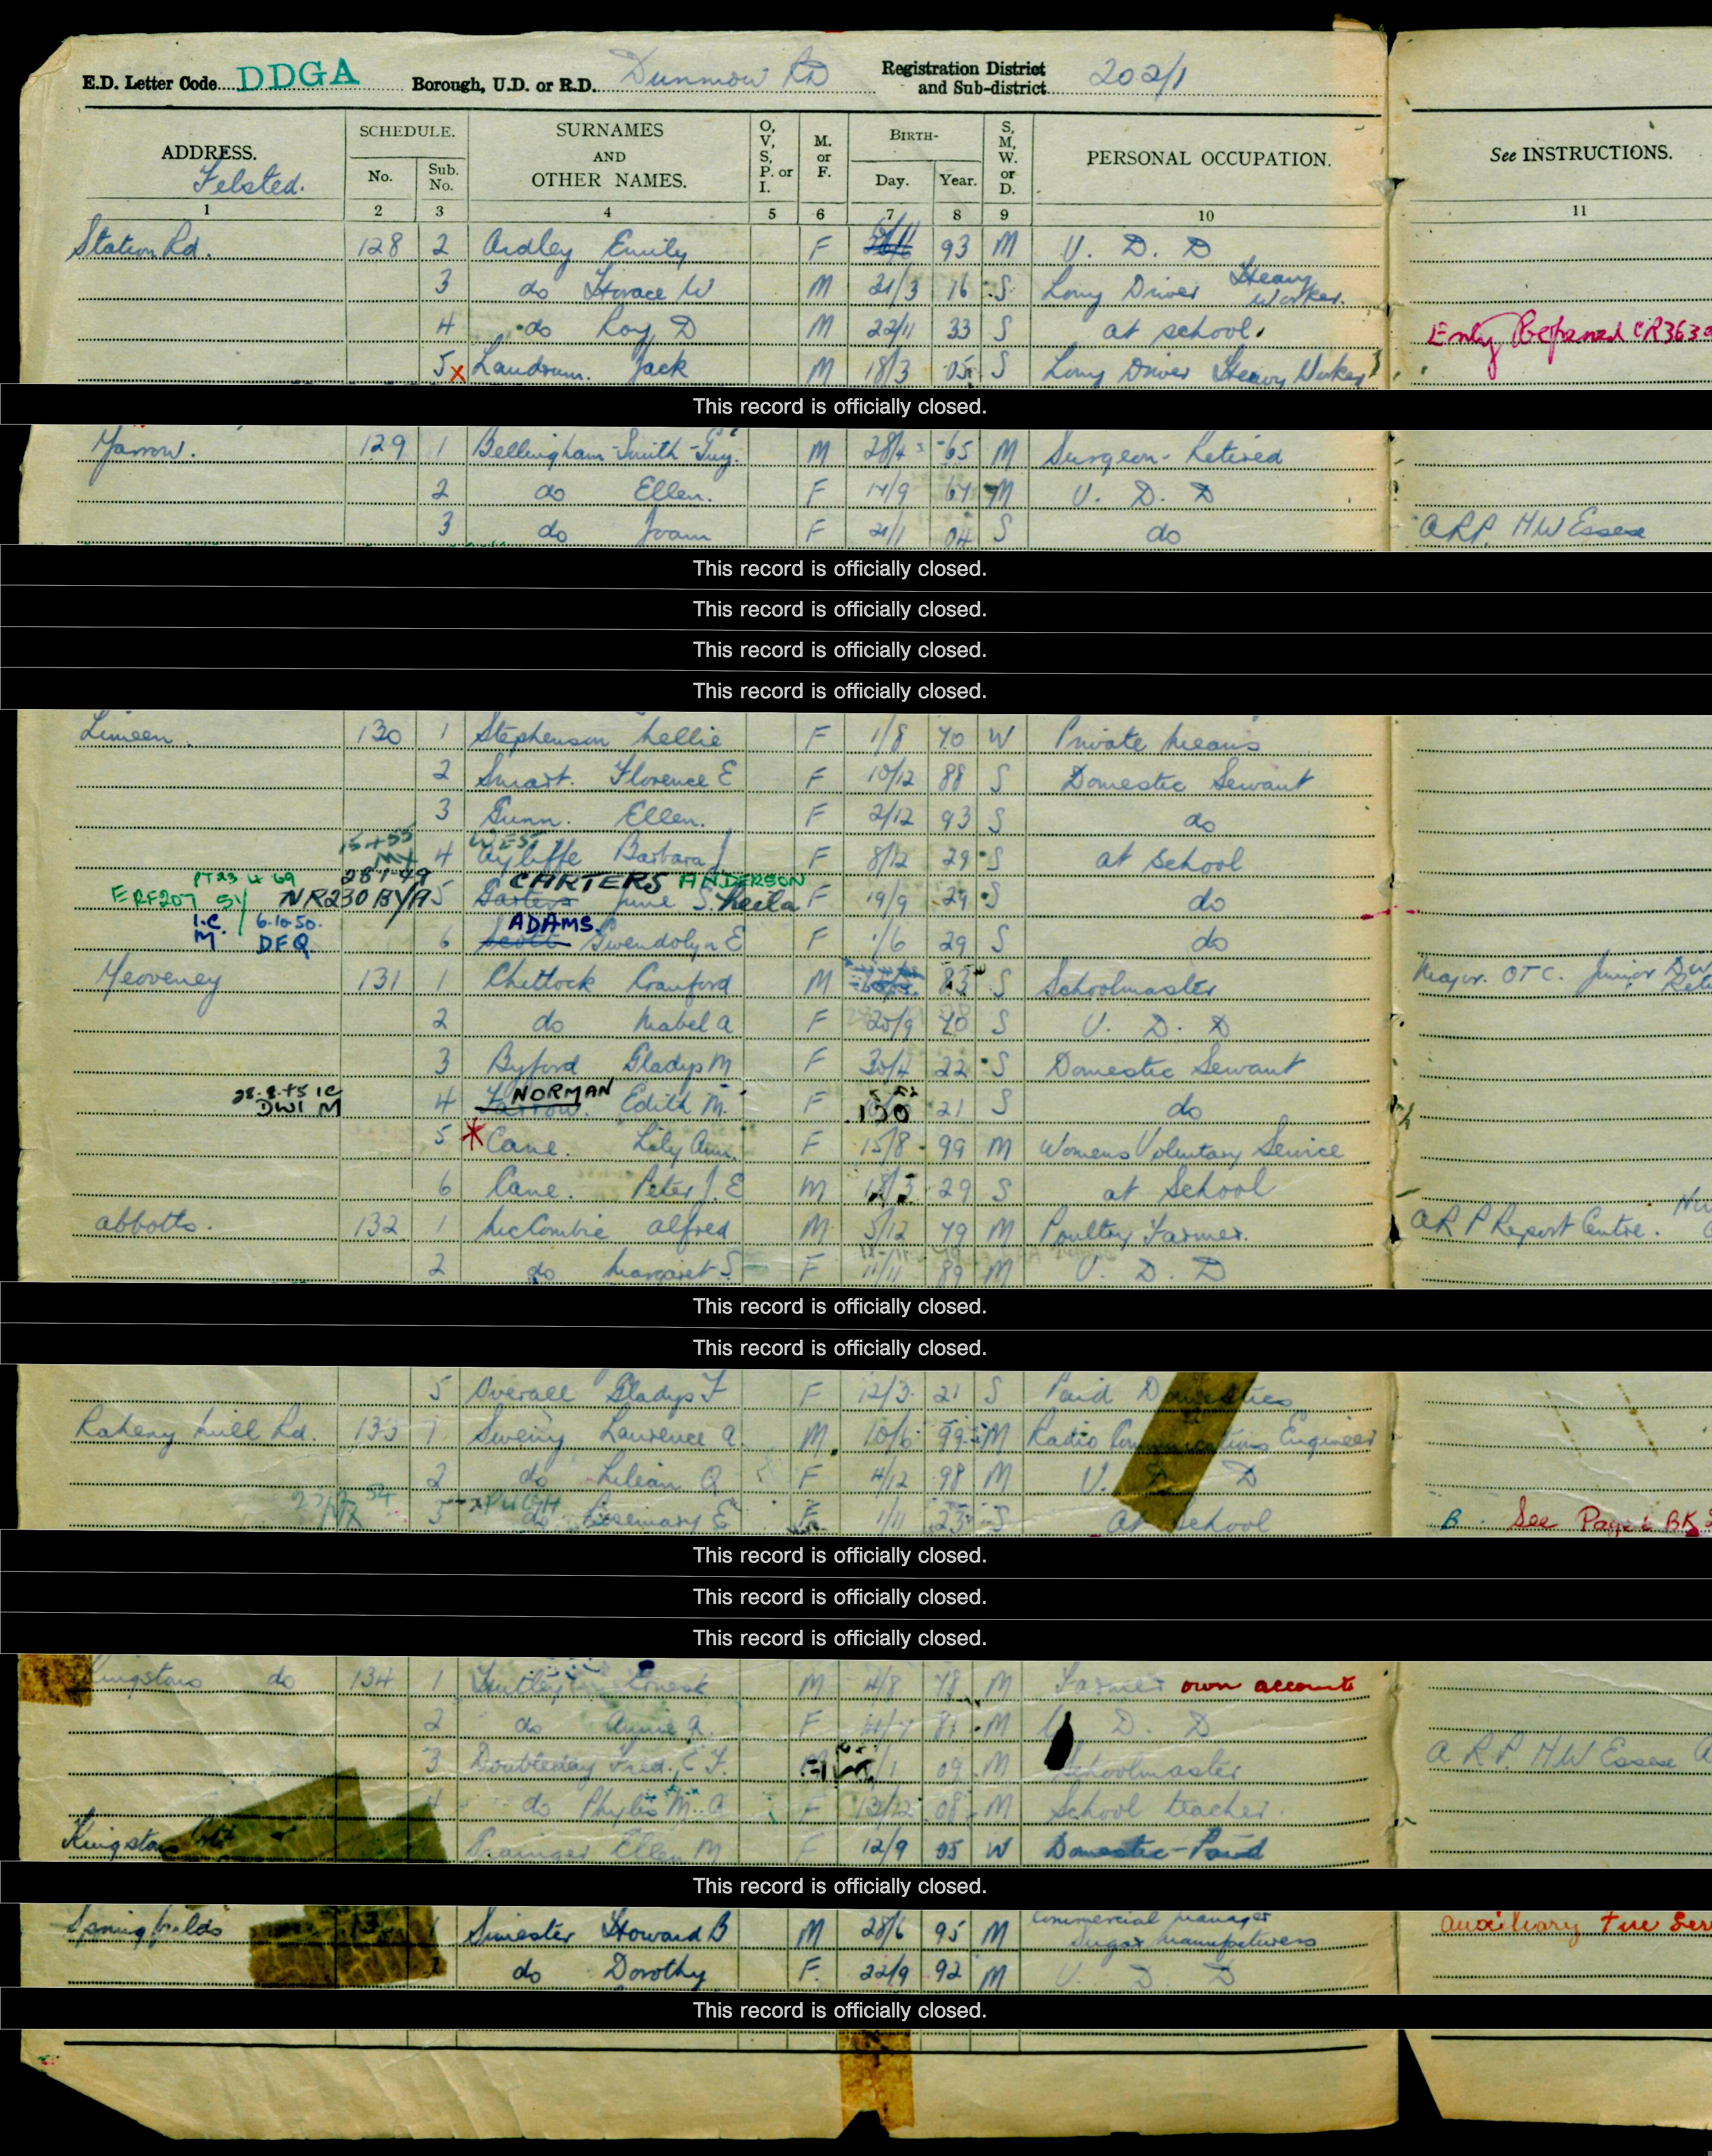 E.D. Letter Code DDGA Borough, U.D. or R.D. Dunmow RD Registration District and Sub-district 202/1
ADDRESS. SCHEDULE. SURNAMES AND OTHER NAMES. O, V, S, P. or I. M. or F. BIRTH- S, M, W. or D. PERSONAL OCCUPATION. See INSTRUCTIONS.
Felsted. No. Sub. No. Day. Year.
1 2 3 4 5 6 7 8 9 10 11
Station Rd. 128 2 Ardley Emily F 93 M U. D. D
3 do Horace W M 21/3 16 S Lorry Driver Heavy Worker.
4 do Roy D M 22/11 33 S at school. Entry CR363
5 x Landrum. Jack M 18/3 05 S Lorry Driver Heavy Worker
This record is officially closed.
Yarrow. 129 1 Bellingham-Smith-Guy. M 28/4 65 M Surgeon - Retired
2 do Ellen. F 14/9 64 M U. D. D
3 do Joan F 21/1 04 S do ARP. HW Essex
This record is officially closed.
This record is officially closed.
This record is officially closed.
This record is officially closed.
Limeen. 130 1 Stephenson Nellie F 1/8 70 W Private Means
2 Smart. Florence E F 10/12 88 S Domestic Servant
3 Gunn. Ellen. F 2/12 93 S do
WEST
4 Ayliffe Barbara J F 8/12 29 S at School
CARTERS ANDERSON
ERF207 SY NR230 BY/A 5 June S. Sheila F 19/9 29 S do
I.C. 6.10.50. ADAMS.
M DFQ 6 Scott Gwendolyn E F 1/6 29 S do
Yeoveney 131 1 Chittock Cranford M 83 S Schoolmaster Major. OTC. Junior
2 do Mabel A F 20/9 70 S U. D. D
3 Byford Gladys M F 30/4 22 S Domestic Servant
28.8.45 IC NORMAN
DWI M 4 Farrow. Edith M. F 21 S do
5 Cane. Lily Ann. F 15/8 99 M Womens Voluntary Service
6 Cane. Peter J. E M 29 S at School
Abbotts. 132 1 McCombie Alfred M 5/12 79 M Poultry Farmer. ARP Report Centre.
2 do Margaret S. F 11/11 89 M U. D. D
This record is officially closed.
This record is officially closed.
5 Overall Gladys F F 12/3 21 S Paid Domestics
Raheny Mill Rd. 133 1 Sweny Laurence A. M 10/6 99 M Radio Communications Engineer
2 do Lilian Q F 4/12 98 M U. D. D
PUGH
3 do Rosemary E F 1/11 23 S at School B. See Page
This record is officially closed.
This record is officially closed.
This record is officially closed.
Kingstons do 134 1 Huntley Ernest M 4/8 78 M Farmer own account
2 do Annie A. F 81 M U. D. D
3 Doubleday Fred. E F. M 09 M Schoolmaster A R P. HW Essex
4 do Phylis M. A F 13/12 08 M School teacher.
Kingstons Cott Grainger Ellen M F 12/9 95 W Domestic-Paid
This record is officially closed.
Springfields 1 Simester Howard B M 28/6 95 M Commercial Manager Sugar Manufacturers Auxiliary Fire Ser
2 do Dorothy F. 22/9 92 M U. D. D
This record is officially closed.